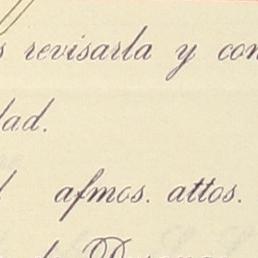 revisarla y con
dad.
afmos. attos.
de